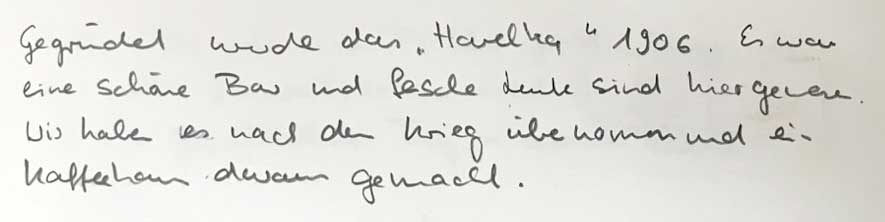 Gegründet wurde das „Havelka“ 1906. Es war
eine schöne Bar und fesche Leute sind hier gewesen.
Wir haben es nach dem Krieg übernommen und ein
Kaffeehaus daraus gemacht.